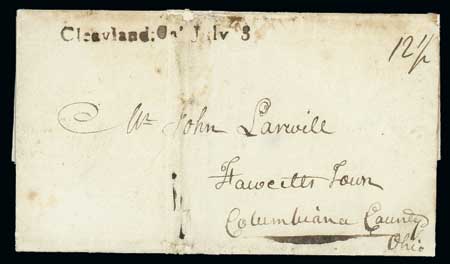 Cleavland: Oa' July 8
12 1/2
Mr. John Larwill
Fawcetts Town
Columbiana County
Ohio